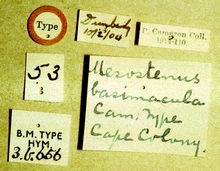 Type
Dunbrody
10/2/04
P. Cameron Coll.
1914-110
53
3
Mesostenus
basimacula
Cam. Type
Cape Colony.
B.M. TYPE
HYM.
3.b.656